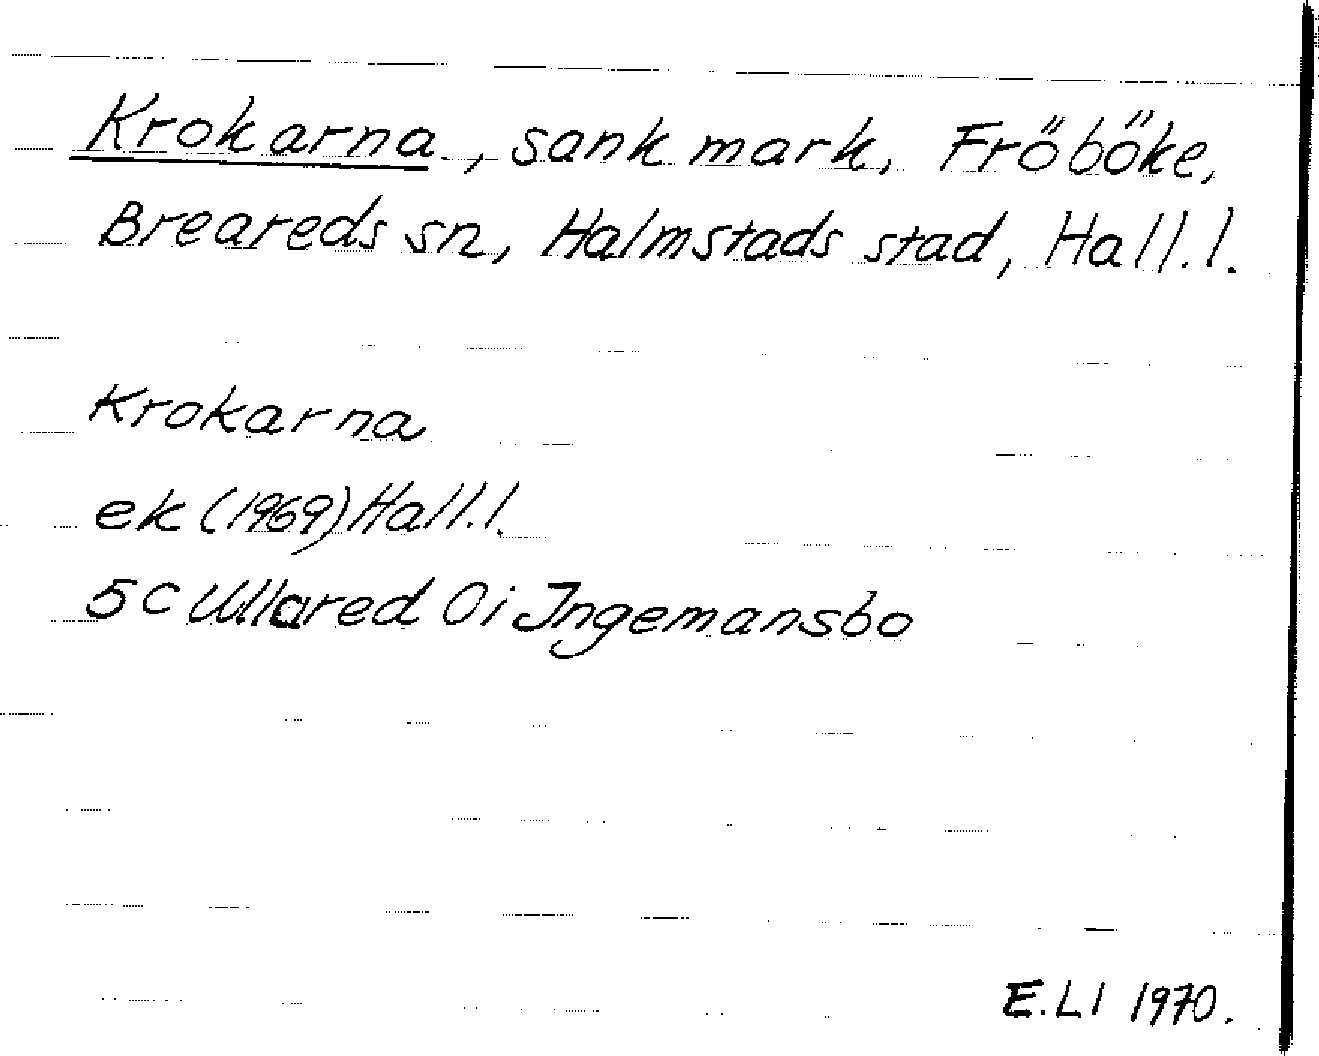 Krokarna, sank mark, Fröböke,
Breareds sn, Halmstads stad, Hall.l.
Krokarna
ek (1969) Hall.l.
5C Ullared 0i Ingemansbo
E.LI 1970.